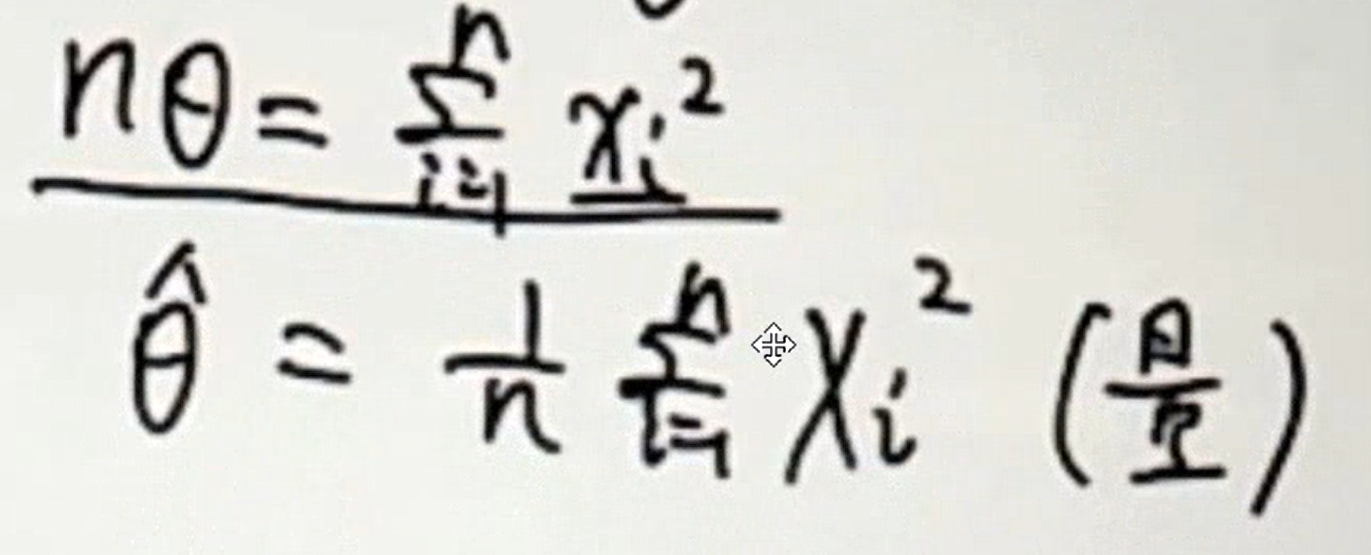 nθ = \sum_{i=1}^{n} x_i^2
\hat{θ} = \frac{1}{n} \sum_{i=1}^{n} X_i^2 (量)